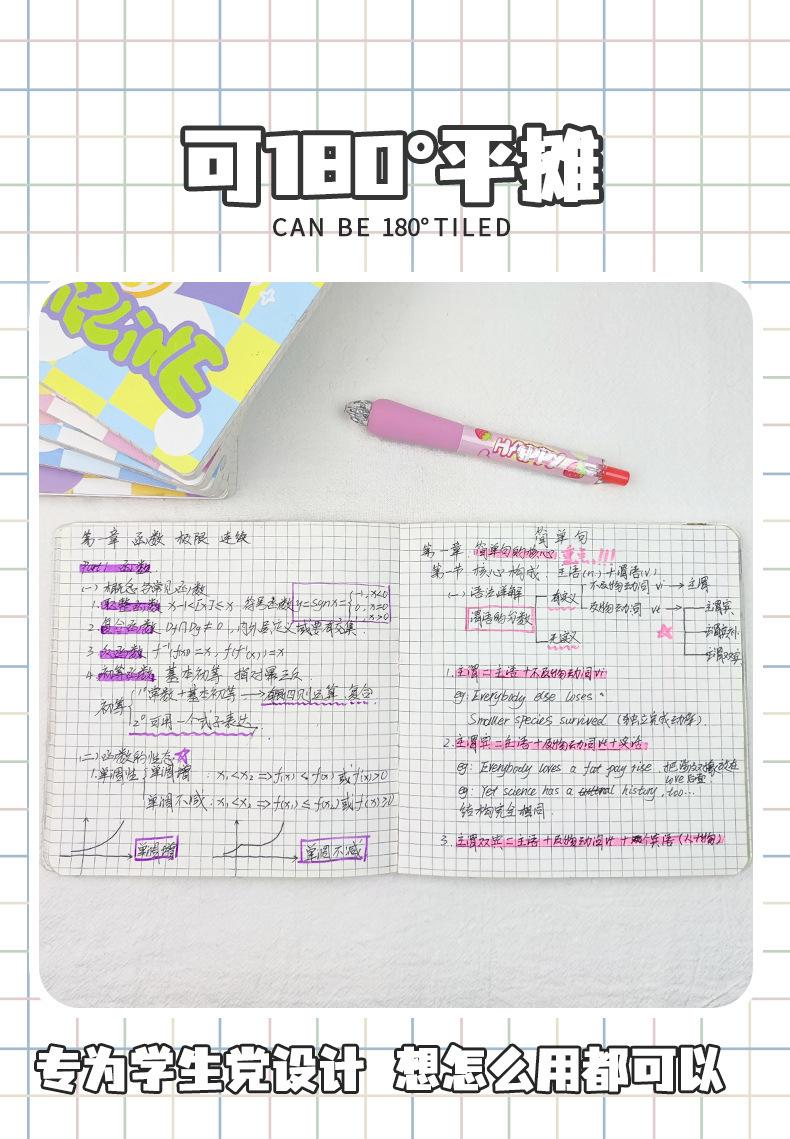 可180°平摊
CAN BE 180°TILED
RLINE
HAPPY
第一章 函数 极限 连续
Part 1 函数
(一) 概念与常见函数
1. 取整函数 x-1<[x]≤x 符号函数 y=sgnx={-1,x<0 0,x=0 x>0
2. 复合函数 Dƒ∩Dg≠∅, 内外层定义域要有交集.
3. 反函数 f⁻¹(f(x))=x, f(f⁻¹(x))=x
4. 初等函数 基本初等 指对幂三反
初等{1°常数+基本初等→四则运算、复合
2°可用一个式子表达
(二) 函数的性态
1.单调性{单调增: x₁<x₂⇒f(x₁)<f(x₂)或f'(x)>0
单调不减: x₁<x₂⇒f(x₁)≤f(x₂)或f'(x)≥0
单调增
单调不减
简单句
第一章 简单句的核心 重点!!!
第一节 核心构成: 主语(n.)+谓语(v.)
(一) 语法详解
谓语的句数
实义
不及物动词 vi→主谓
及物动词 vt
主谓宾
主谓双宾
1.主谓=主语+不及物动词vi
eg: Everybody else loses.
Smaller species survived (独立完成动作).
2.主谓宾=主语+及物动词vt+宾语
eg: Everybody loves a fat pay rise.
eg: Yet science has a history, too...
结构完全相同.
3.主谓双宾=主语+及物动词vt+宾语(人+物)
专为学生党设计 想怎么用都可以